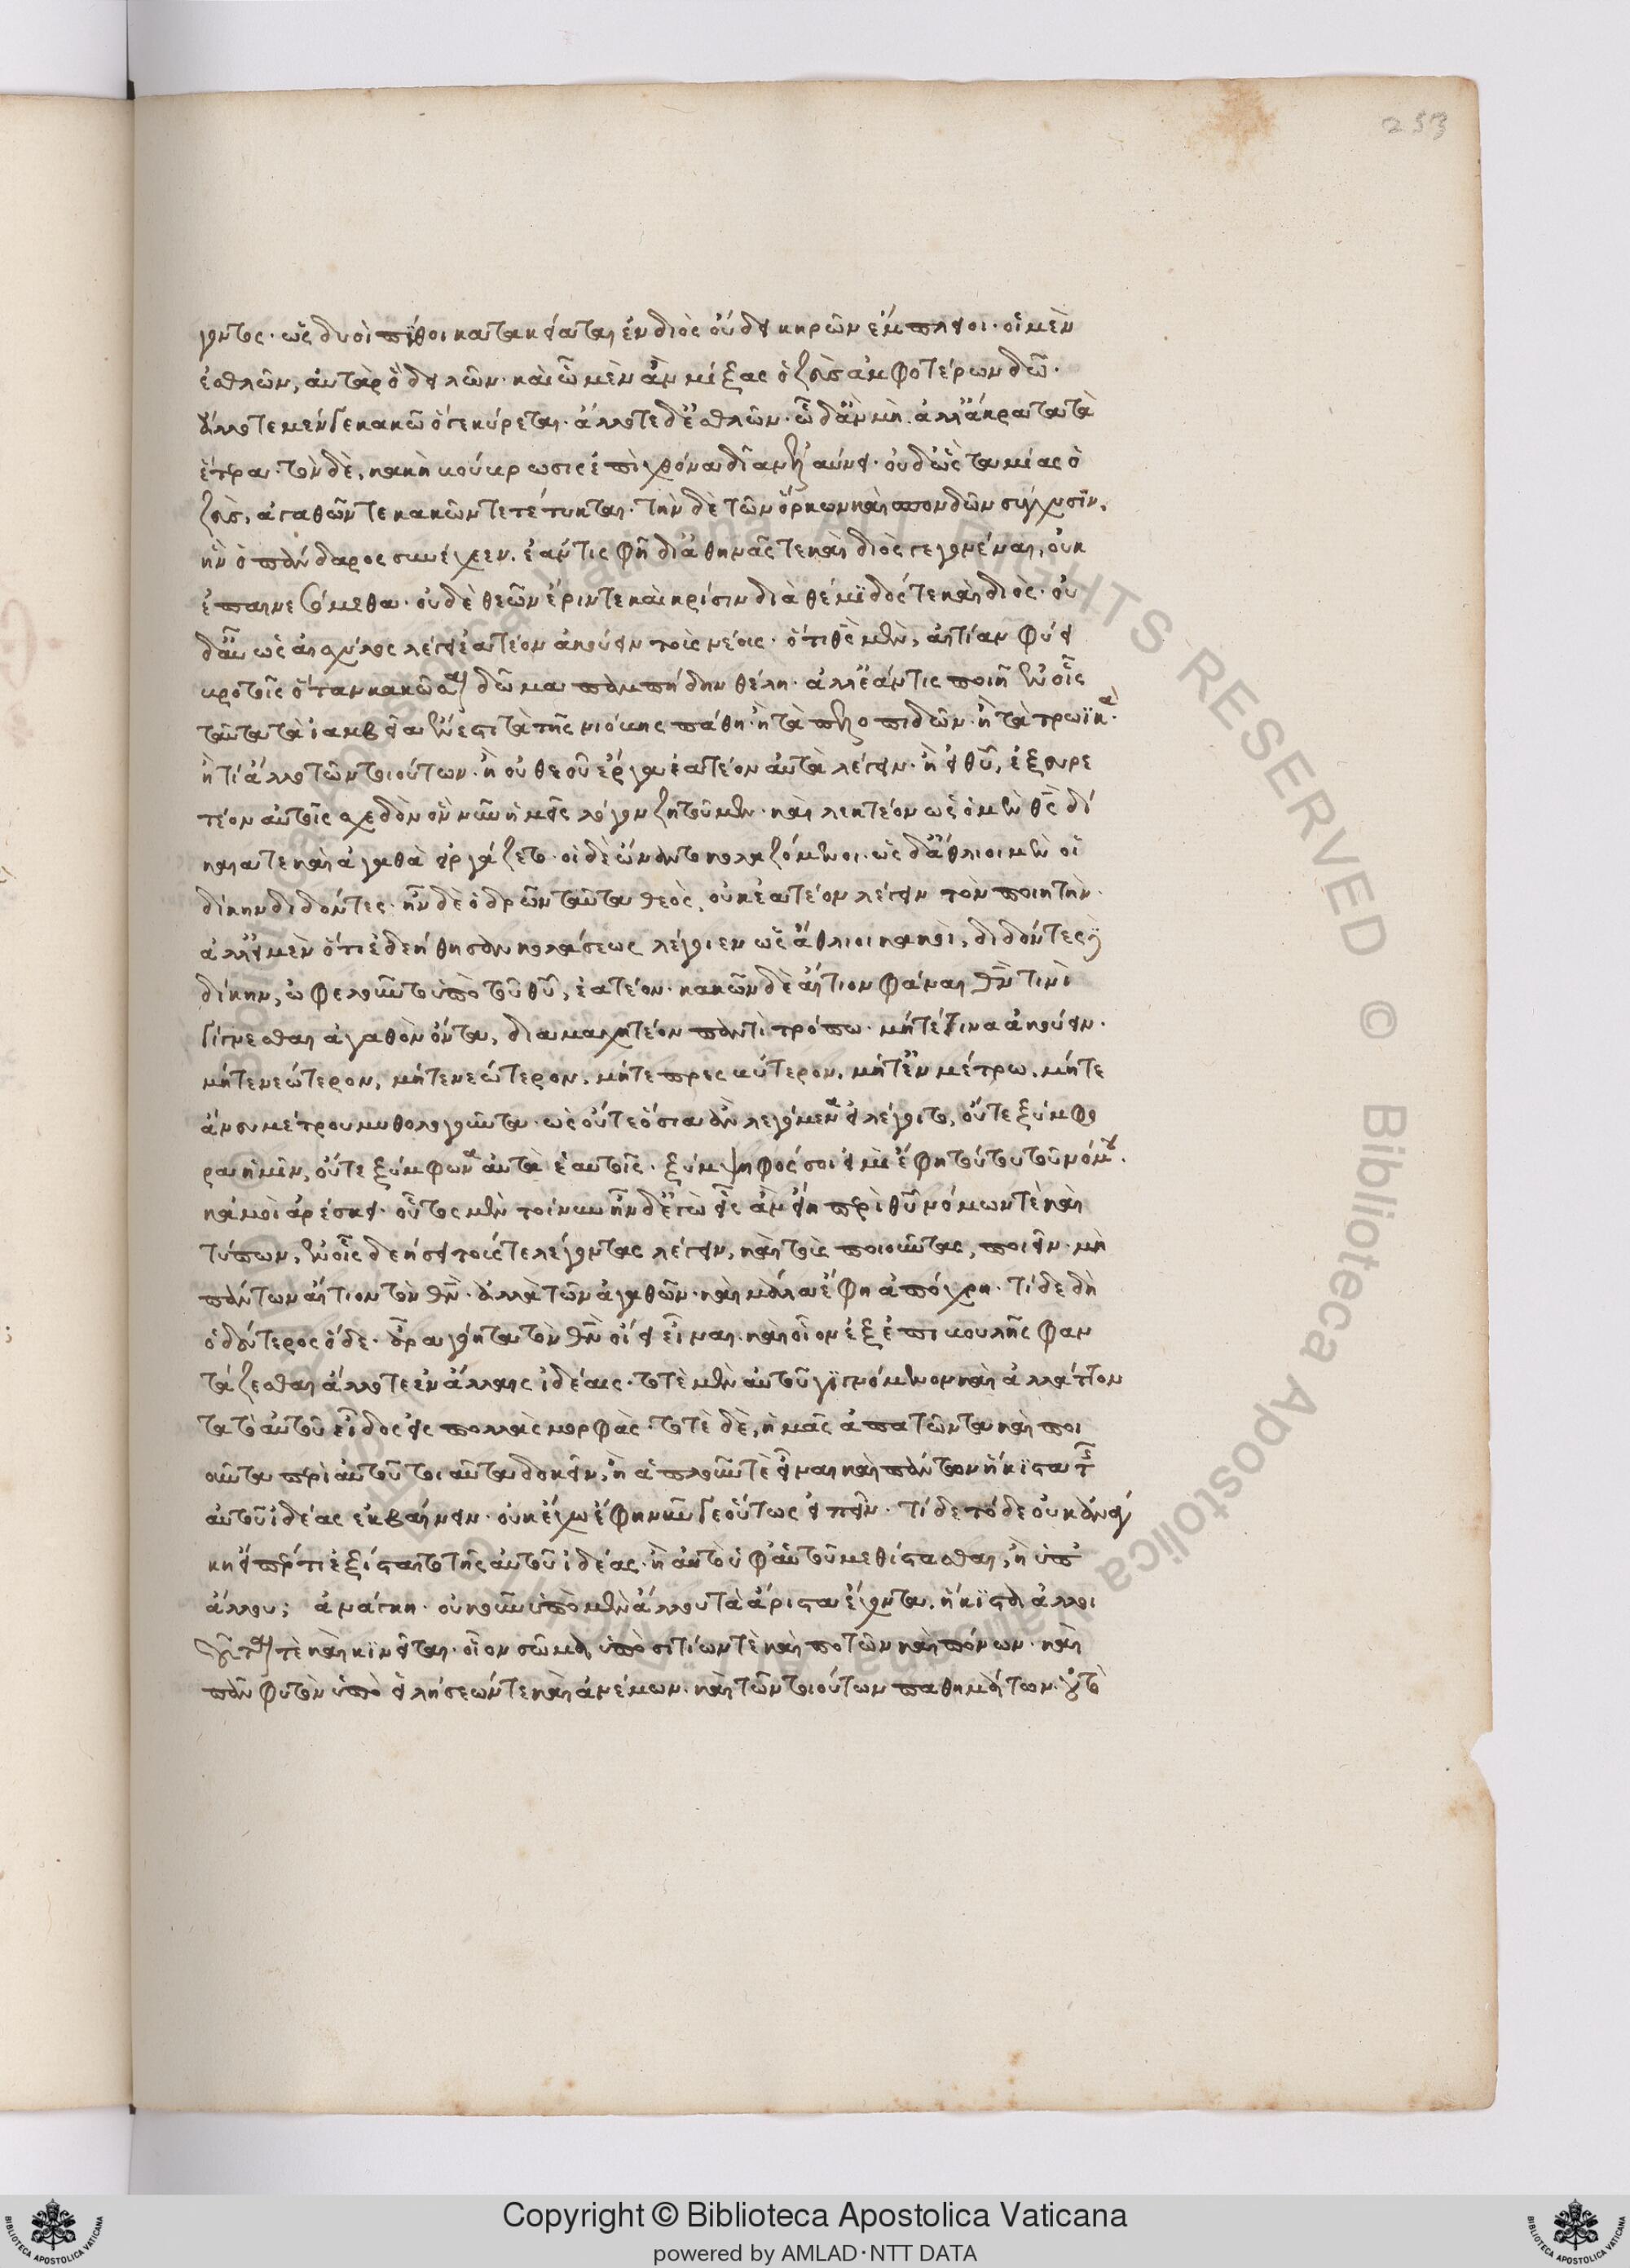 253
γοντος· ὡς δυοὶ πίθοι κατακείαται ἐν διὸς οὔδει κηρῶν ἔμπλειοι· οἱ μὲν
ἐσθλῶν, αὐτὰρ ὃ δειλῶν· καὶ ᾧ μὲν ἂν μίξας ὁ ζεὺς ἀμφοτέρων δῷ·
ἄλλοτε μέν γε κακῶ ὅγε κύρεται· ἄλλοτε δ' ἐσθλῶν· ᾧ δ' ἂν μὴ ἀλλ' ἄκρατα τὰ
ἕτερα· τὸν δὲ, κακὴ βούβρωσις ἐπὶ χθόνα δῖαν ἐλαύνει· οὐδ' ὡς ταμίας ὁ
ζεὺς, ἀγαθῶν τε κακῶν τε τέτυκται· τὴν δὲ τῶν ὅρκων καὶ σπονδῶν σύγχυσιν,
ἣν ὁ πάνδαρος συνέχεεν, ἐάν τις φῆ δι' ἀθηνᾶς τε καὶ διὸς γεγονέναι, οὐκ
ἐπαινεσόμεθα· οὐδὲ θεῶν ἔριν τε καὶ κρίσιν διὰ θέμιδός τε καὶ διὸς· οὐ
δ' αὖ ὡς αἰσχύλος λέγει ἐατέον ἀκούειν τοῖς νέοις· ὅτι θεὸς μὲν, αἰτίαν φύει
βροτοῖς ὅταν κακῶσαι δῶμα παμπήδην θέλη· ἀλλ' ἐάν τις ποιῆ ἐν οἷς
ταῦτα τὰ ἰαμβεῖα ἔνεστι τὰ τῆς νιόβης πάθη· ἢ τὰ πελοπιδῶν· ἢ τὰ τρωϊκὰ·
ἤ τι ἄλλο τῶν τοιούτων· ἢ οὐ θεοῦ ἔργα ἐατέον αὐτὰ λέγειν· ἢ εἰ θεοῦ, ἐξευρε
τέον αὐτοῖς σχεδὸν ὃν νῦν ἡμεῖς λόγον ζητοῦμεν· καὶ λεκτέον ὡς ὁ μὲν θεὸς δί
καια τε καὶ ἀγαθὰ εἰργάζετο· οἱ δὲ ὠνίναντο κολαζόμενοι· ὡς δ' ἄθλιοι μὲν οἱ
δίκην διδόντες· ἦν δὲ ὁ δρῶν ταῦτα θεὸς, οὐκ ἐατέον λέγειν τὸν ποιητὴν·
ἀλλ' εἰ μὲν ὅτι ἐδεήθησαν κολάσεως λέγοιεν ὡς ἄθλιοι κακοὶ, διδόντες
δίκην, ὠφελοῦντο ὑπὸ τοῦ θεοῦ, ἐατέον· κακῶν δὲ αἴτιον φάναι θεὸν τινὶ
γίγνεσθαι ἀγαθὸν ὄντα, διαμαχητέον παντὶ τρόπω· μήτέ τινα ἀκούειν·
μήτε νεώτερον, μήτε νεώτερον, μήτε πρεσβύτερον, μήτ' ἐν μέτρω, μήτε
ἄνευ μέτρου μυθολογοῦντα· ὡς οὔτε ὅσια ἂν λεγόμενα εἰ λέγοιτο, οὔτε ξύμφο
ρα ἡμῖν, οὔτε ξύμφωνα αὐτὰ ἑαυτοῖς· ξύμψηφός σοι εἰμὶ ἔφη τούτου τοῦ νόμου·
καί μοι ἀρέσκει· οὗτος μὲν τοίνυν ἦν δ' ἐγὼ εἷς ἂν εἴη περὶ θεοῦ νόμων τὲ καὶ
τύπων, ἐν οἷς δεήσει τούς τε λέγοντας λέγειν, καὶ τοὺς ποιοῦντας, ποιεῖν· μὴ
πάντων αἴτιον τὸν θεὸν· ἀλλὰ τῶν ἀγαθῶν· καὶ μάλα ἔφη ἀπόχρη· τί δε δὴ
ὁ δεύτερος ὅδε· ἆρα γόητα τὸν θεὸν οἴει εἶναι, καὶ οἷον ἐξ ἐπιβουλῆς φαν
τάζεσθαι ἄλλοτε ἐν ἄλλαις ἰδέαις· τοτὲ μὲν αὐτοῦ γιγνόμενον καὶ ἀλλάττον
τα τὸ αὐτοῦ εἶδος εἰς πολλὰς μορφὰς· τοτὲ δὲ, ἡμᾶς ἀπατῶντα καὶ ποι
οῦντα περὶ αὐτοῦ τοιαῦτα δοκεῖν, ἢ ἁπλοῦν τὲ εἶναι καὶ πάντων ἥκιστα τῆς
αὐτοῦ ἰδέας ἐκβαίνειν· οὐκ ἔχω ἔφη νῦν γε οὕτως εἰπεῖν· τί δε τόδε οὐκ ἀνάγ
κη εἴπερ τι ἐξίσταιτο τῆς αὐτοῦ ἰδέας· ἢ αὐτὸ ὑφ' αὑτοῦ μεθίστασθαι, ἢ ὑπ'
ἄλλου; ἀνάγκη· οὐκοῦν ὑπὸ μὲν ἄλλου τὰ ἄριστα ἔχοντα, ἥκιστα ἀλλοι
οῦται τὲ καὶ κινεῖται· οἷον σῶμα ὑπὸ σιτίων τὲ καὶ ποτῶν καὶ πόνων· καὶ
πᾶν φυτὸν ὑπὸ εἱλήσεών τε καὶ ἀνέμων· καὶ τῶν τοιούτων παθημάτων· οὐ τὸ
Copyright © Biblioteca Apostolica Vaticana
powered by AMLAD·NTT DATA